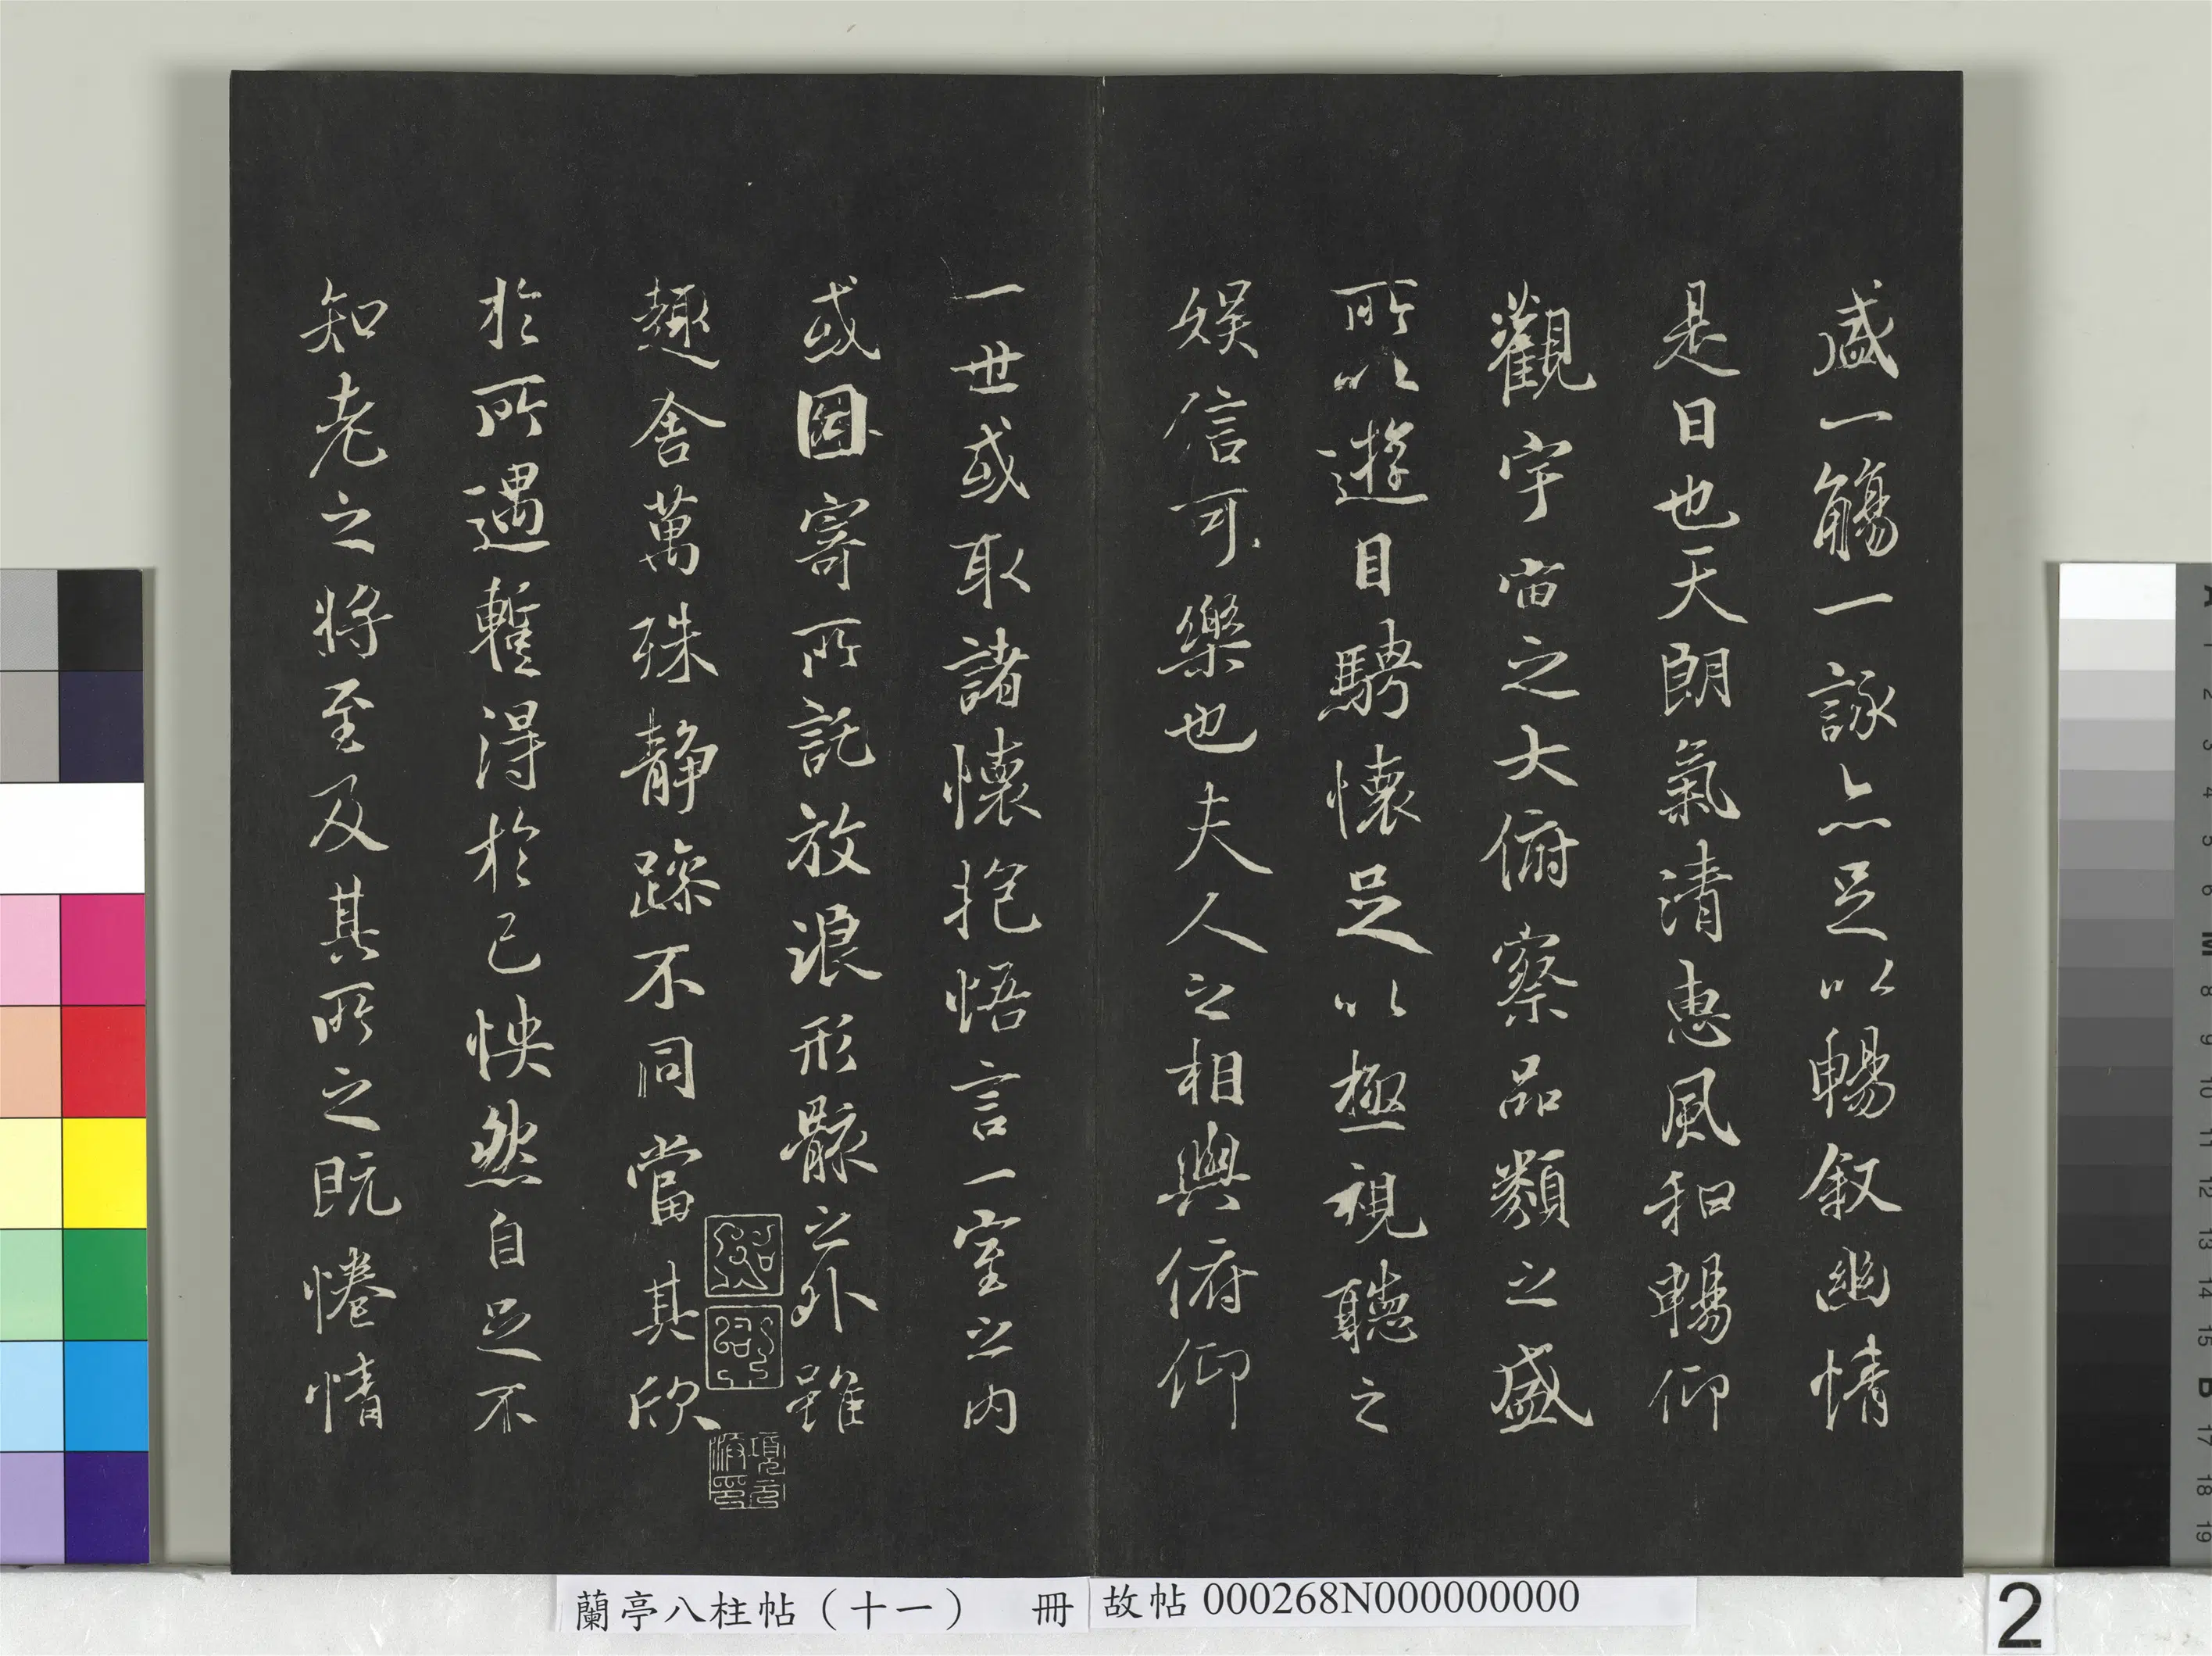 盛一觴一詠亦足以暢叙幽情
是日也天朗氣清惠風和暢仰
觀宇宙之大俯察品類之盛
所以遊目騁懷足以極視聽之
娱信可樂也夫人之相與俯仰
一世或取諸懷抱悟言一室之内
或因寄所託放浪形骸之外雖
趣舍萬殊静躁不同當其欣
於所遇暫得於己怏然自足不
知老之将至及其所之既惓情
項元汴印
蘭亭八柱帖（十一） 冊
故帖 000268N000000000
2